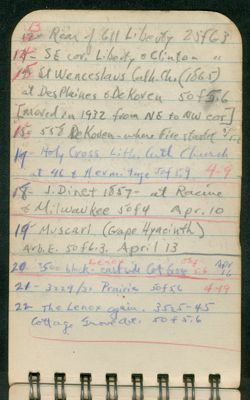 Rear of 611 Liberty 25 of 6.3
14- SE cor. Liberty & Clinton "
15- St Wenceslaus Cath. Ch. (1865)
at DesPlaines & DeKoven 50 of 5.6
[moved in 1932 from NE to NW cor]
16- 558 DeKoven - where Fire started
17- Holy Cross Lith. Cath Church
at 46 & Hermitage 50 f 5.9 4-9
18- J. Dinet 1857- at Racine
& Milwaukee 50 f 4 Apr. 10
19- Muscari (Grape Hyacinth)
Arb. E. 50 f 6.3. April 13
Lenox
20 3500 block - east side Cot Grove 5.6 Apr 16
21- 3229/31 Prairie 50 f 56 4-19
22- The Lenox again. 3525-45
Cottage Grove ave. 50 f 5.6